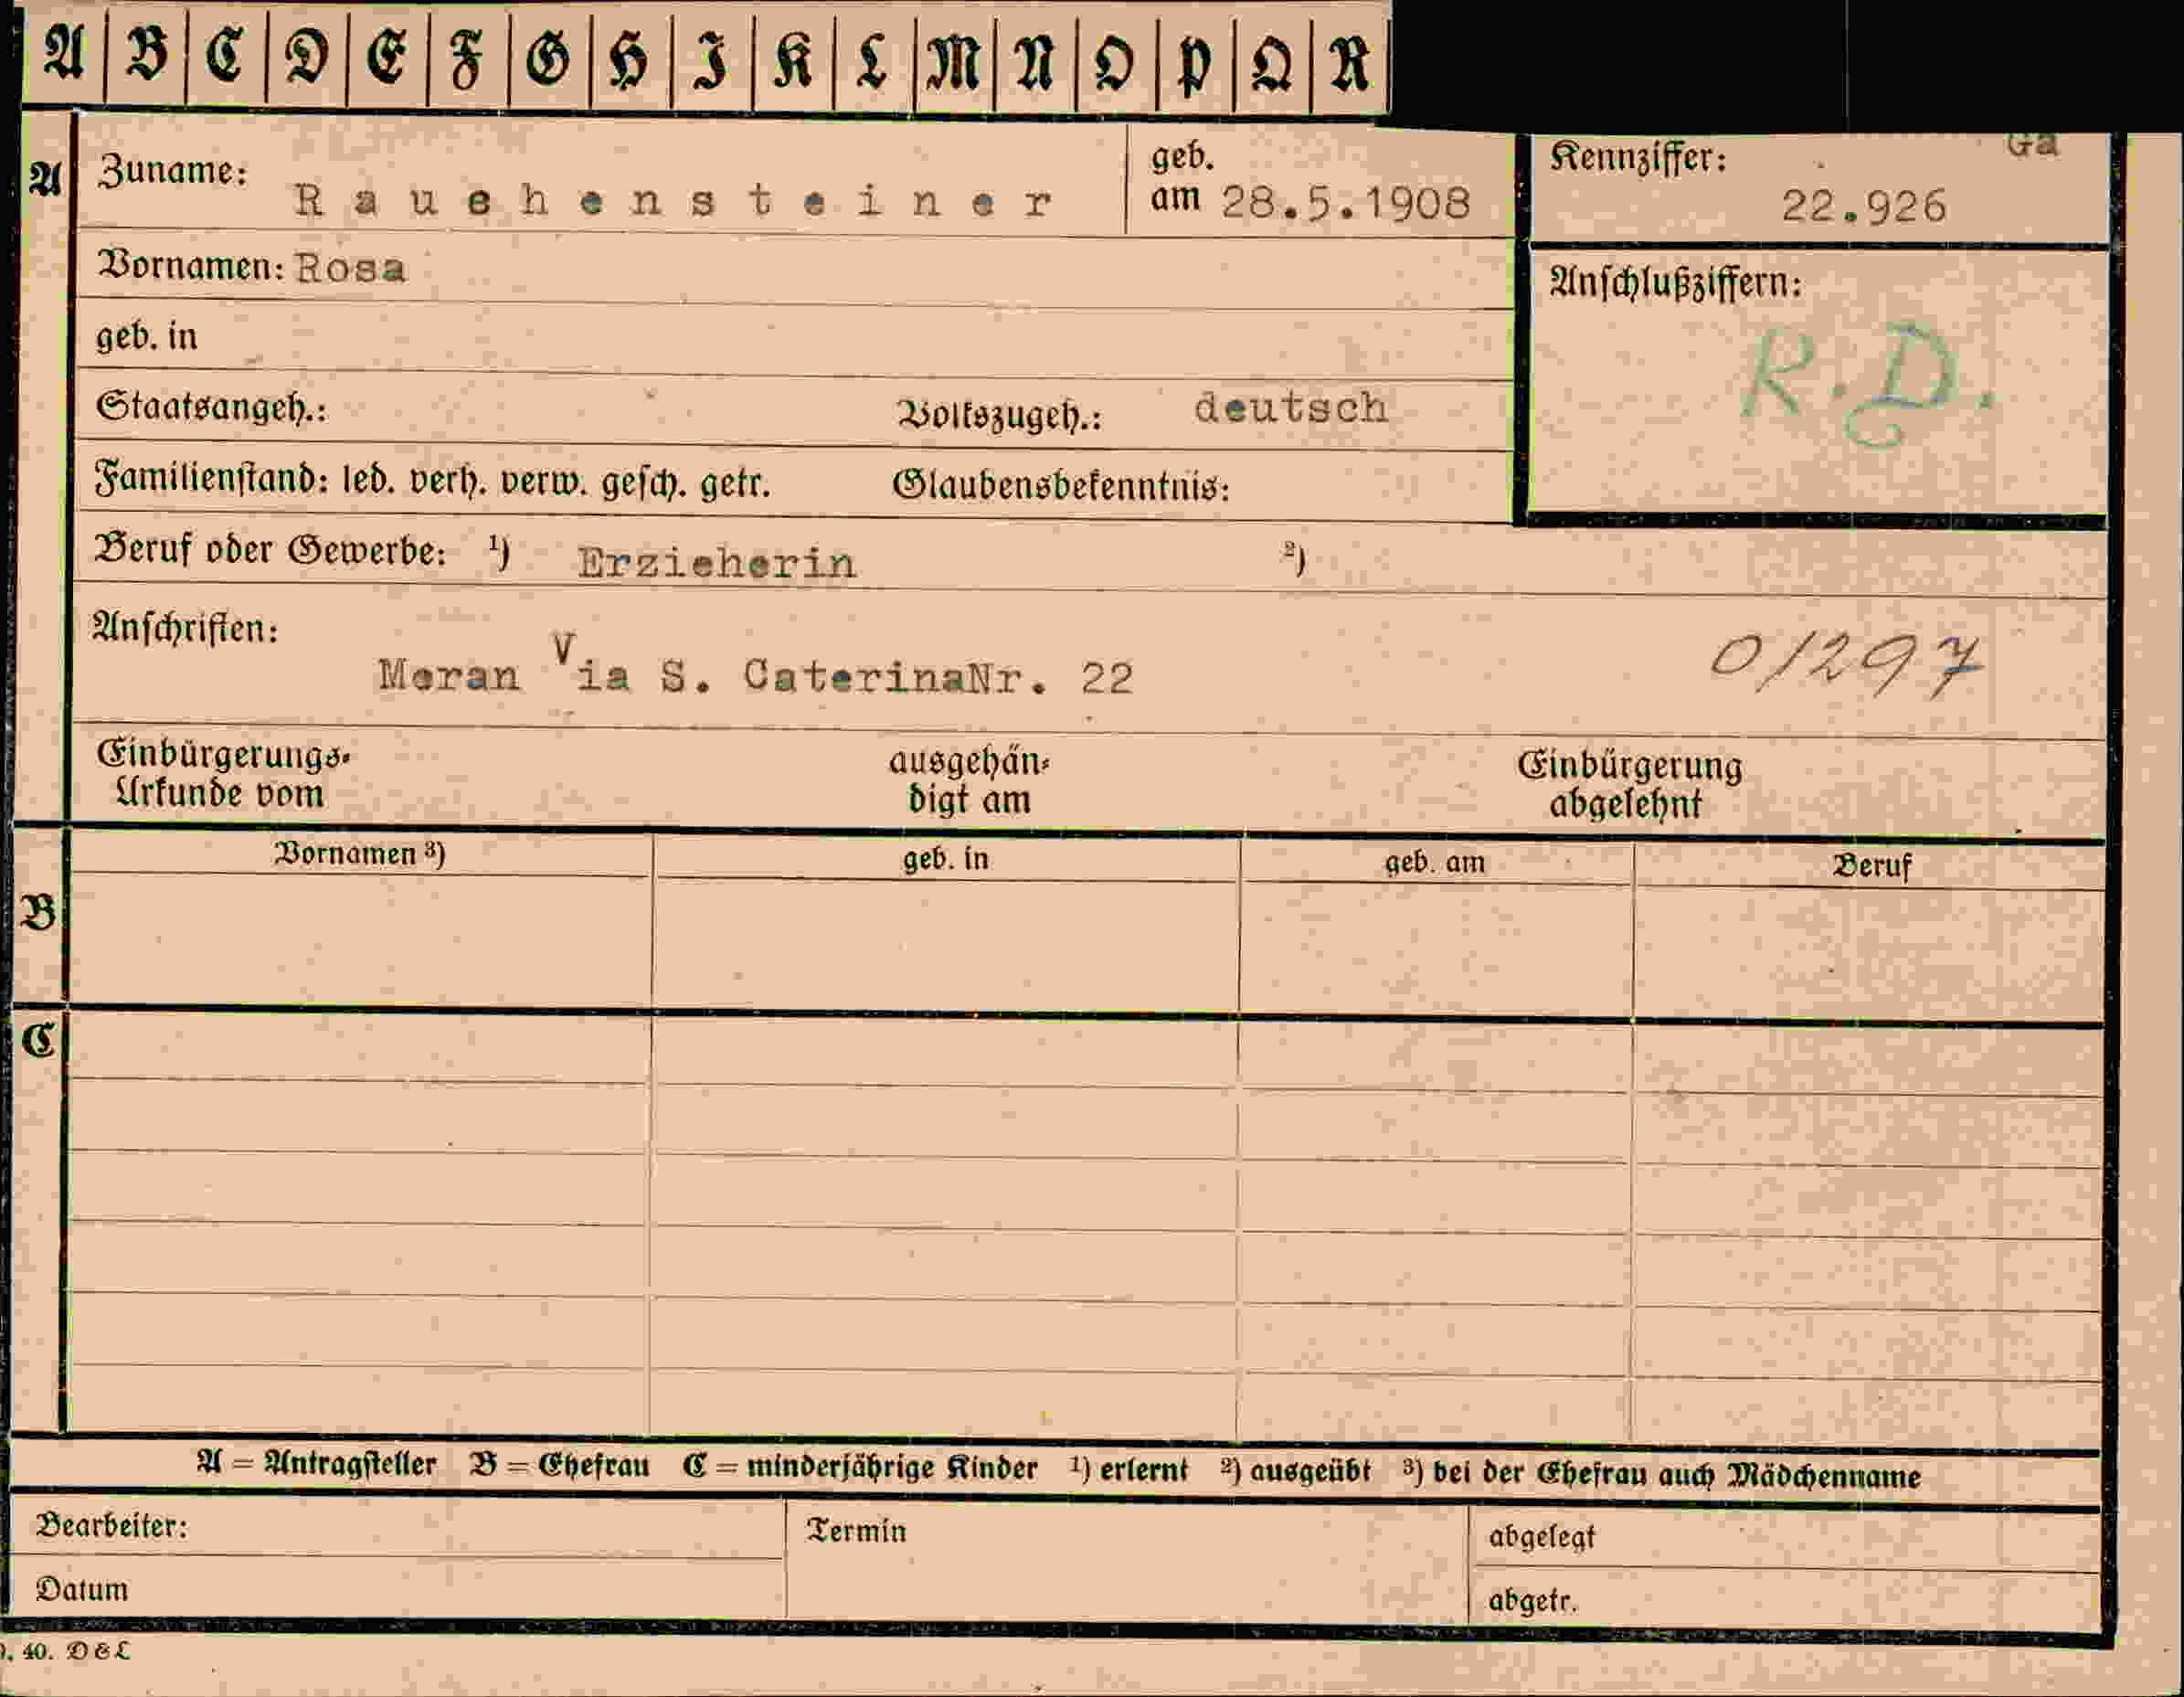 A B C D E F G H I K L M N O P Q R
A
Zuname: Rauehensteiner
geb. am 28.5.1908
Kennziffer: 22.926
Ga
Vornamen: Rosa
Anschlußziffern:
R.D.
geb. in
Staatsangeh.: Volkszugeh.: deutsch
Familienstand: led. verh. verw. gesch. getr. Glaubensbekenntnis:
Beruf oder Gewerbe: ¹) Erzieherin ²)
Anschriften:
Meran Via S. CaterinaNr. 22 0/297
Einbürgerungs- ausgehän- Einbürgerung
Urkunde vom digt am abgelehnt
Vornamen ³) geb. in geb. am Beruf
B
C
A = Antragsteller B = Ehefrau C = minderjährige Kinder ¹) erlernt ²) ausgeübt ³) bei der Ehefrau auch Mädchenname
Bearbeiter: Termin abgelegt
Datum abgetr.
40. D & L